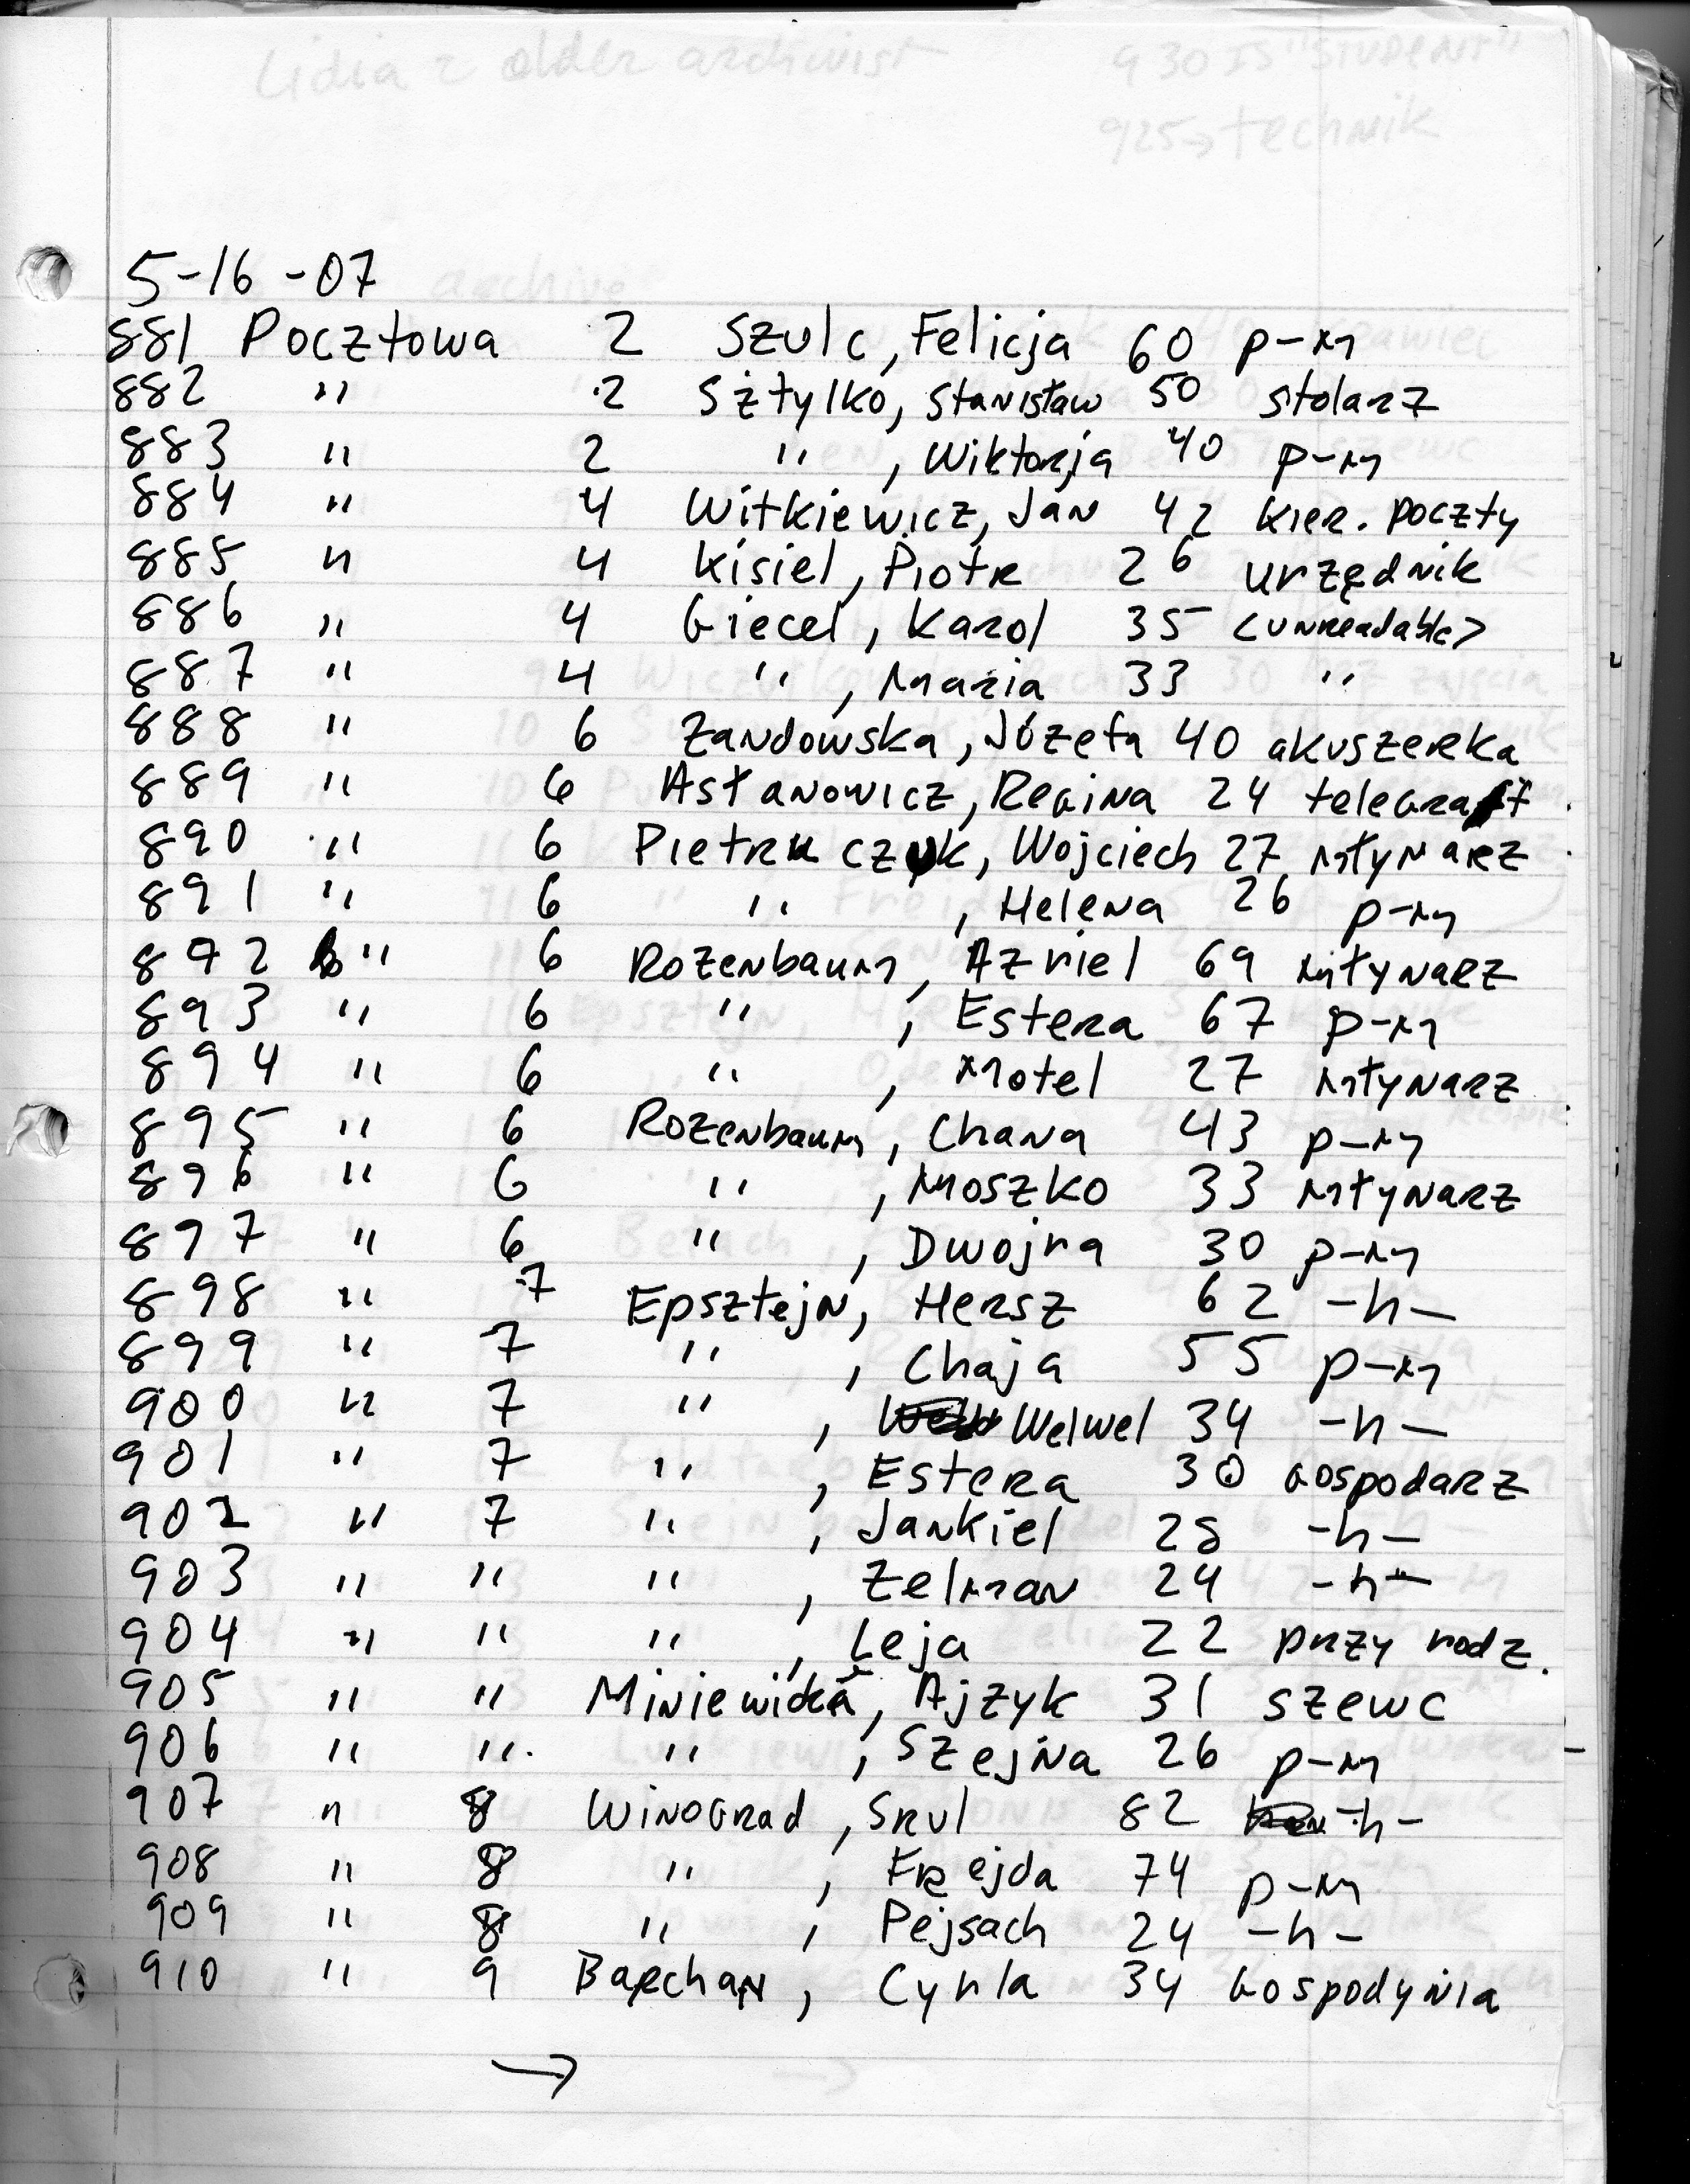 Lidia z older archivist 930 IS "STUDENT"
925→technik
5-16-07
881 Pocztowa 2 Szulc, Felicja 60 p-m
882 " 2 Sztylko, Stanisław 50 stolarz
883 " 2 " , Wiktorja 40 p-m
884 " 4 Witkiewicz, Jan 42 kier. poczty
885 " 4 Kisiel, Piotr 26 urzędnik
886 " 4 Giecel, Karol 35 <unreadable>
887 " 4 " , Maria 33 "
888 " 6 Zandowska, Józefa 40 akuszerka
889 " 6 Astanowicz, Regina 24 telegraf
890 " 6 Pietruczuk, Wojciech 27 młynarz
891 " 6 " , Helena 26 p-m
892 " 6 Rozenbaum, Azriel 69 młynarz
893 " 6 " , Estera 67 p-m
894 " 6 " , Motel 27 młynarz
895 " 6 Rozenbaum, Chana 43 p-m
896 " 6 " , Moszko 33 młynarz
897 " 6 " , Dwojra 30 p-m
898 " 7 Epsztejn, Hersz 62 -h-
899 " 7 " , Chaja 55 p-m
900 " 7 " , Welwel 34 -h-
901 " 7 " , Estera 30 gospodarz
902 " 7 " , Jankiel 28 -h-
903 " " " , Zelman 24 -h-
904 " " " , Leja 22 przy rodz.
905 " " , Ajzyk 31 szewc
906 " " " , Szejna 26 p-m
907 " 8 Winograd, Srul 82 -h-
908 " 8 " , Frejda 74 p-m
909 " 8 " , Pejsach 24 -h-
910 " 9 Barchan, Cyrla 34 gospodynia
→